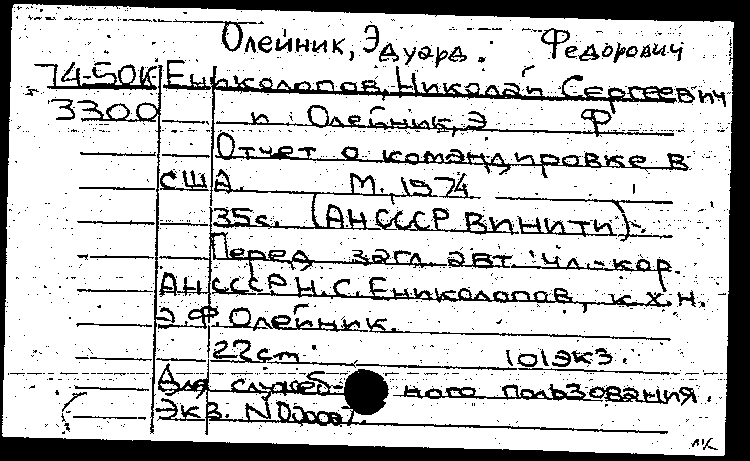 Олейник, Эдуард. Федорович
74-50К Ениколопов, Николай Сергеевич
3300 и Олейник, Э Ф
Отчет о командировке в
США. М., 1974
35с. (АН СССР ВИНИТИ).
Перед загл. авт. чл.-кор.
АН СССР Н.С. Ениколопов, к.х.н.
Э.Ф. Олейник.
22см 101экз.
Для служеб- ного пользования.
Экз. N 00007.